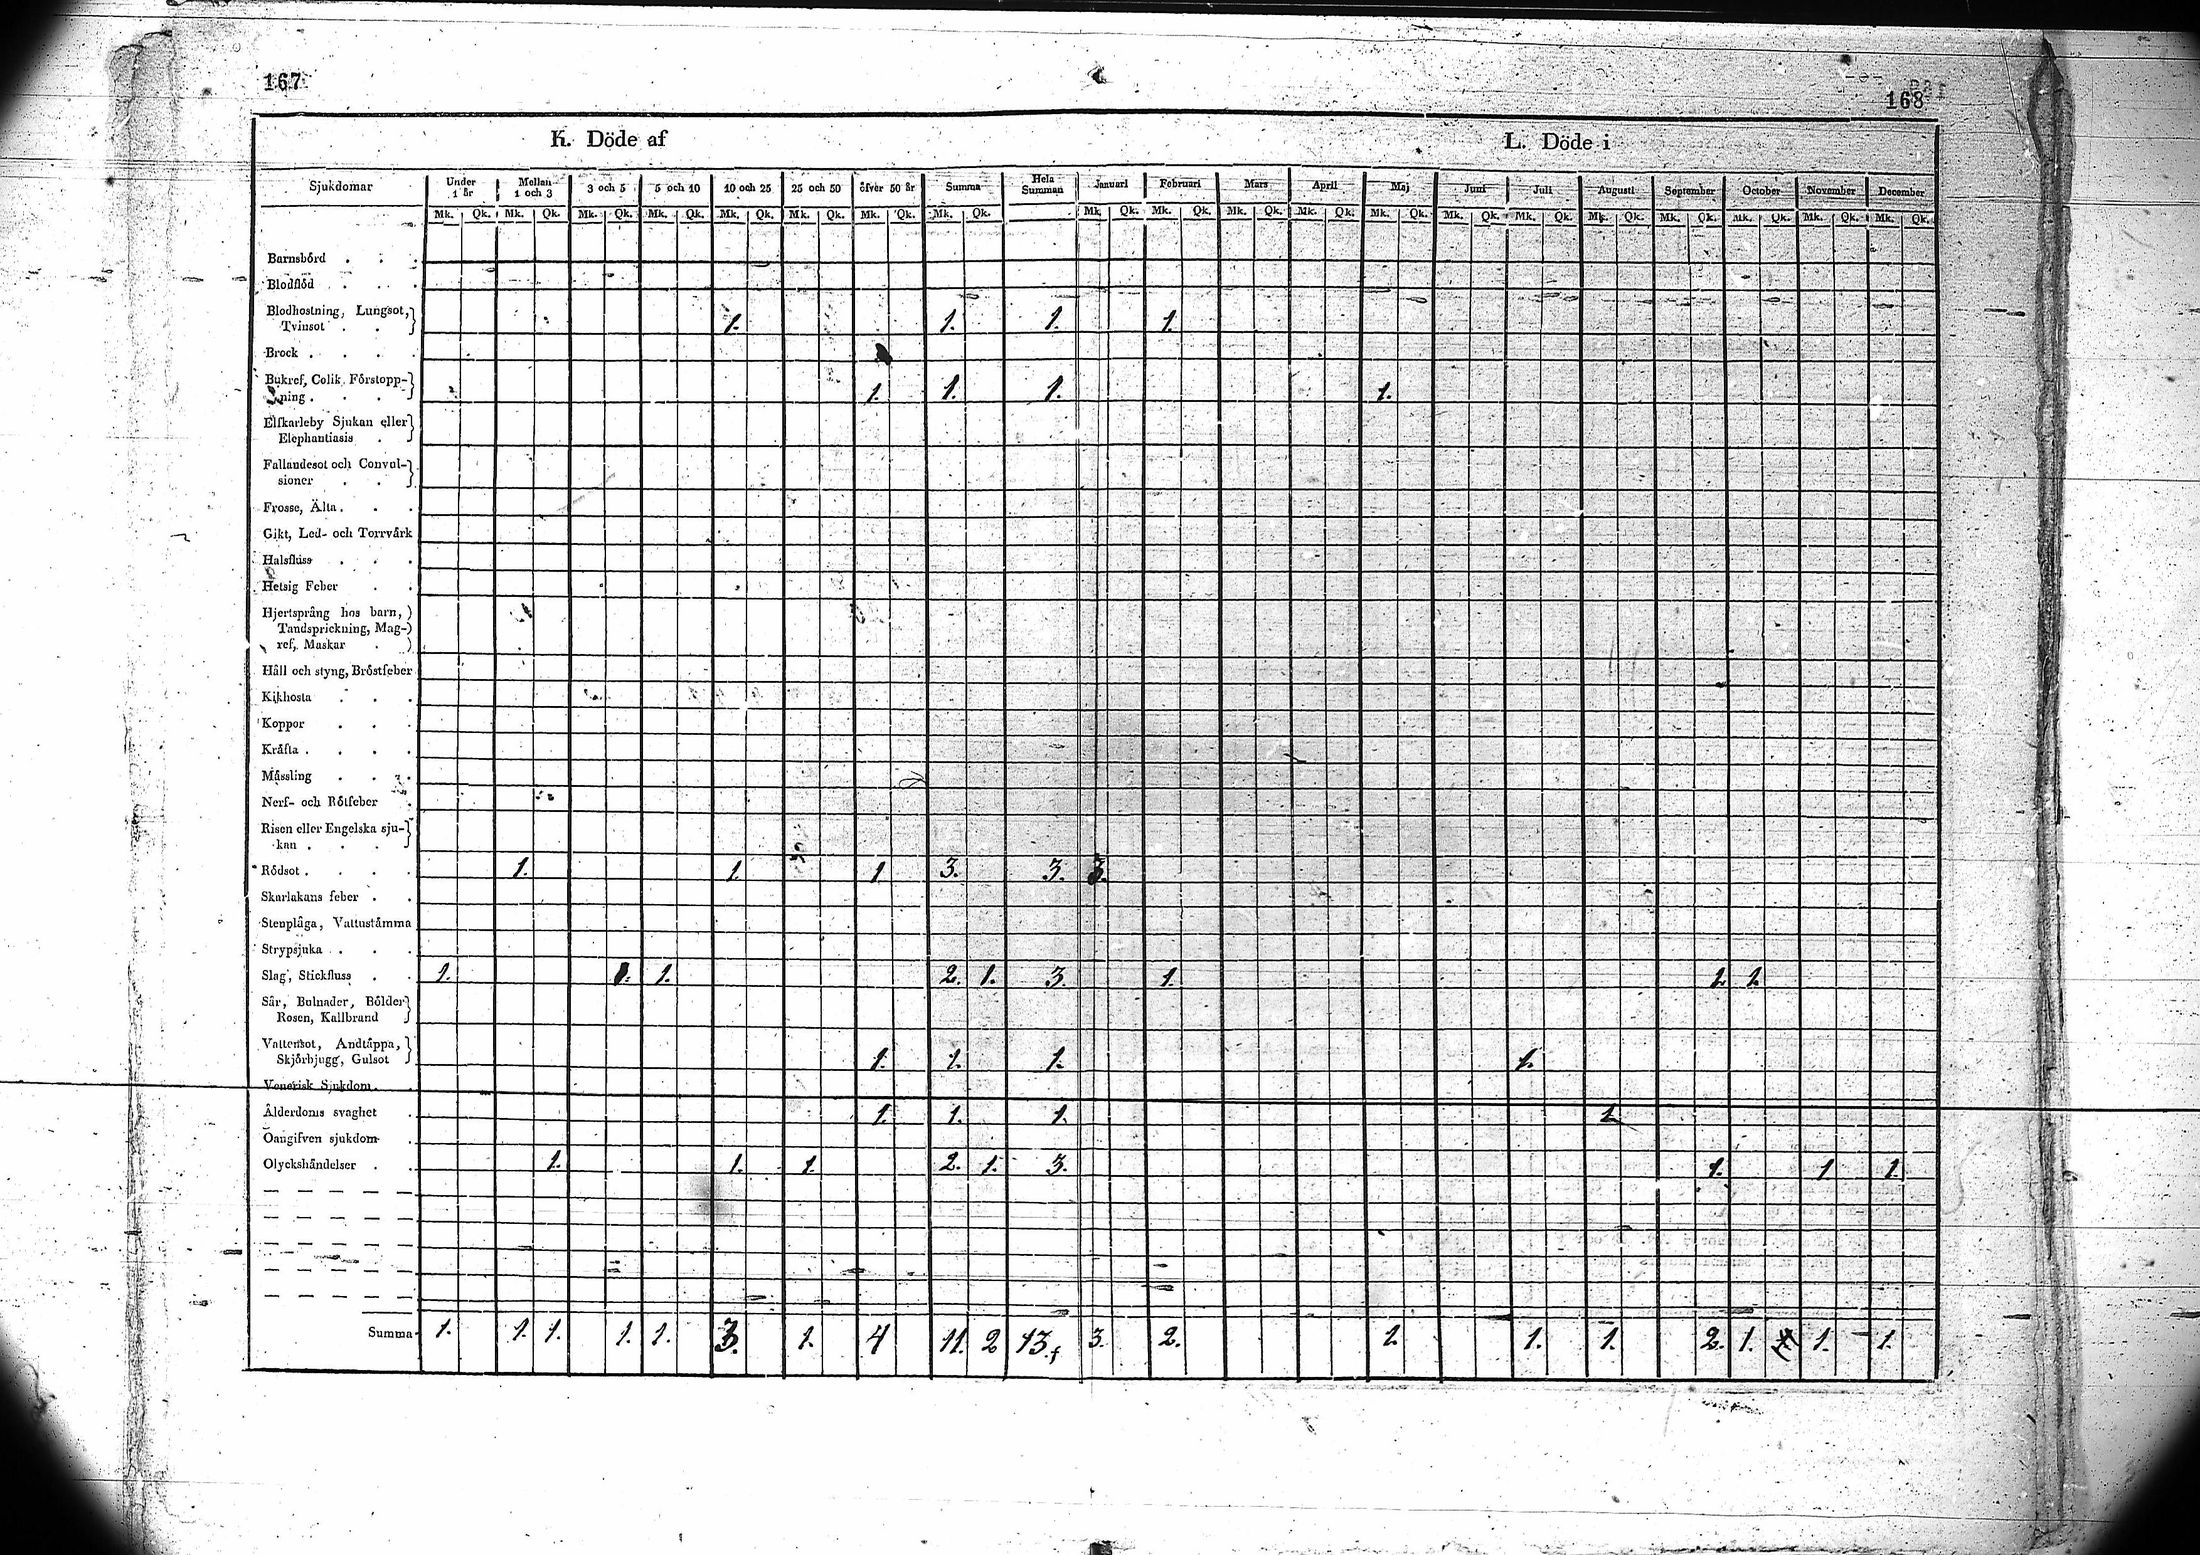 167
168
K. Döde af L. Döde i
Sjukdomar Under 1 år Mellan 1 och 3 3 och 5 5 och 10 10 och 25 25 och 50 öfver 50 år Summa Hela Summan Januari Februari Mars April Maj Juni Juli Augusti September October November December
Mk. Qk. Mk. Qk. Mk. Qk. Mk. Qk. Mk. Qk. Mk. Qk. Mk. Qk. Mk. Qk. Mk. Qk. Mk. Qk. Mk. Qk. Mk. Qk. Mk. Qk. Mk. Qk. Mk. Qk. Mk. Qk. Mk. Qk. Mk. Qk. Mk. Qk. Mk. Qk.
Barnsbörd . . .
Blodflöd . . .
Blodhostning, Lungsot,
Tvinsot . . 1. 1. 1. 1.
Brock . . . .
Bukref, Colik, Förstopp-
ning . . . . 1. 1. 1. 1.
Elfkarleby Sjukan eller
Elephantiasis .
Fallandesot och Convul-
sioner . .
Frosse, Älta . . .
Gikt, Led- och Torrvärk
Halsfluss . . .
Hetsig Feber . .
Hjertsprång hos barn,
Tandsprickning, Mag-
ref, Maskar .
Håll och styng, Bröstfeber
Kikhosta . . .
Koppor . . .
Kräfta . . . .
Måssling . . .
Nerf- och Rötfeber .
Risen eller Engelska sju-
kan . . . .
Rödsot . . . . 1. 1. 1 3. 3. 3.
Skarlakans feber . .
Stenplåga, Vattustämma
Strypsjuka . . .
Slag, Stickfluss . . 1. 1. 1. 2. 1. 3. 1. 1 1.
Sår, Bulnader, Bölder
Rosen, Kallbrand
Vattensot, Andtäppa,
Skjörbjugg, Gulsot 1. 1. 1. 1.
Venerisk Sjukdom . .
Ålderdoms svaghet . 1. 1. 1. 1.
Oangifven sjukdom .
Olyckshändelser . . 1. 1. 1. 2. 1. 3. 1. 1. 1.
Summa 1. 1. 1. 1. 1. 3. 1. 4 11. 2 13. 3. 2. 1 1. 1. 2. 1. 1. 1.